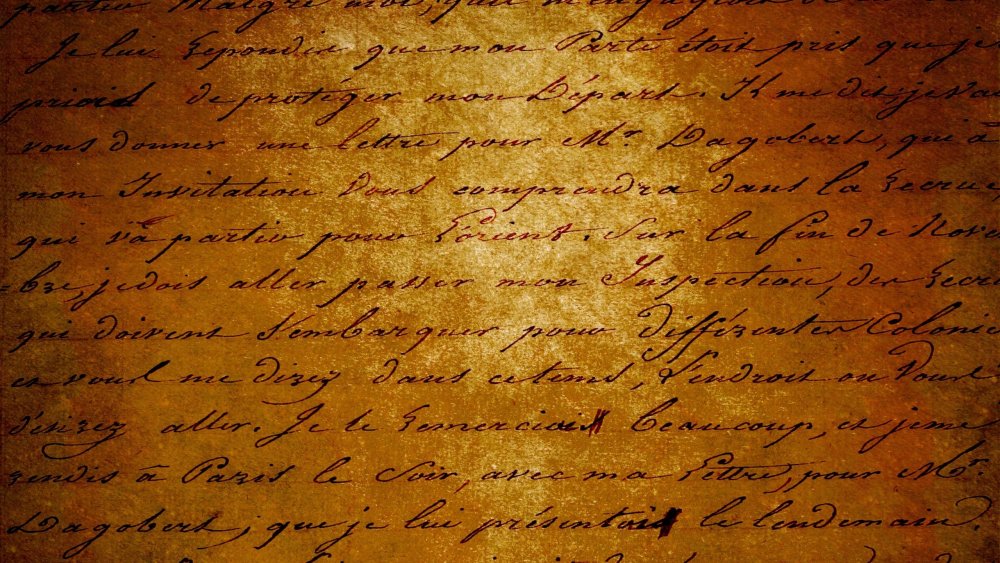 partir Malgré moi, que m'engageoit
Je lui Repondis que mon Parti étoit pris que je
priois de protéger mon Départ. Il me dit, je va
vous donner une lettre pour Mr. Dagobert, qui à
mon Invitation Vous comprendra dans la Recrue,
qui va partir pour L'orient. Sur la fin de Nove
=bre, je dois aller passer mon Inspection, des Recru
qui doivent S'embarquer pour différentes Colonie
et vous me direz dans ce tems, L'endroit ou Vous
désirez aller. Je le Remerciois beaucoup, et je me
rendis à Paris le Soir, avec ma Lettre, pour Mr.
Dagobert, que je lui présentois le lendemain.